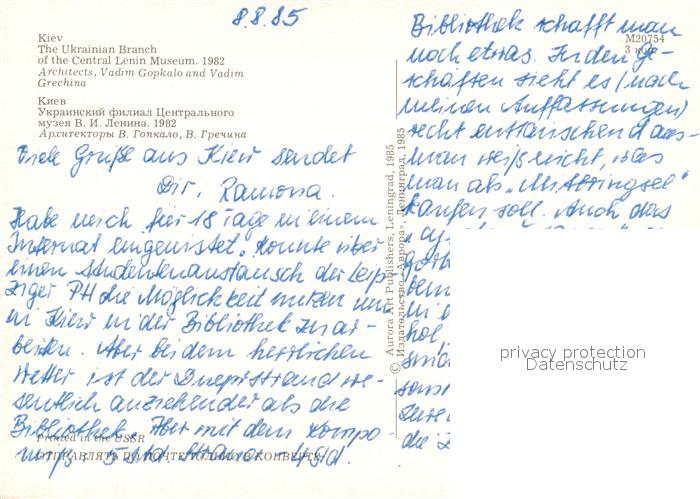 8.8.85
Kiev
The Ukrainian Branch
of the Central Lenin Museum. 1982
Architects, Vadim Gopkalo and Vadim
Grechina
Киев
Украинский филиал Центрального
музея В. И. Ленина. 1982
Архитекторы В. Гопкало, В. Гречина
Viele Grüße aus Kiew sendet
Dir, Ramona.
Habe mich für 18 Tage in einem
Internat eingenistet. Konnte über
einen Studentenaustausch der Leip-
ziger PH die Möglichkeit nutzen um
in Kiew in der Bibliothek zu ar-
beiten. Aber bei dem herrlichen
Wetter ist der Dneprstrand we-
sentlich anziehender als die
Bibliothek. Aber mit dem Kompro-
miß: 5 Std. Strand 4 Std.
Printed in the USSR
ОТПРАВЛЯТЬ ПО ПОЧТЕ ТОЛЬКО В КОНВЕРТЕ
© Aurora Art Publishers, Leningrad, 1985
Издательство «Аврора», Ленинград, 1985
M20754
3 коп.
Bibliothek schafft man
noch etwas. In den Ge-
schäften sieht es (nach
meinen Auffassungen)
recht enttäuschend aus-
man weiß nicht, was
man als „Mitbringsel"
kaufen soll. Auch das
privacy protection
Datenschutz